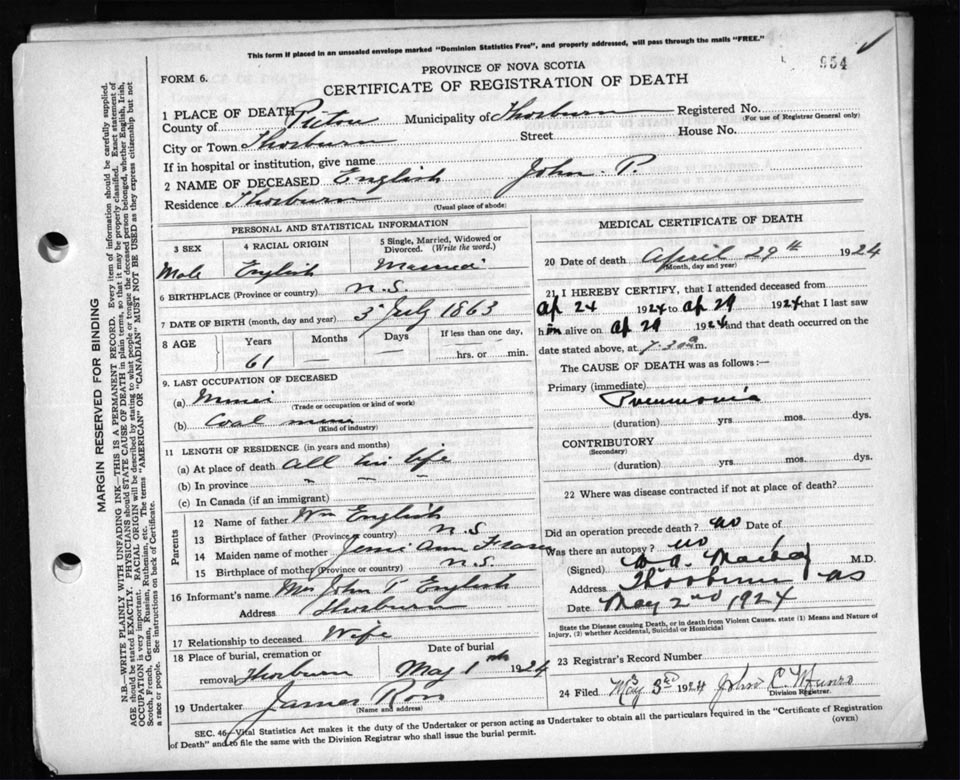 This form if placed in an unsealed envelope marked "Dominion Statistics Free", and properly addressed, will pass through the mails "FREE."
954
FORM 6.
PROVINCE OF NOVA SCOTIA
CERTIFICATE OF REGISTRATION OF DEATH
1 PLACE OF DEATH
County of Pictou Municipality of Thorburn Registered No.
(For use of Registrar General only)
City or Town Thorburn Street House No.
If in hospital or institution, give name
2 NAME OF DECEASED English John P.
Residence Thorburn (Usual place of abode)
PERSONAL AND STATISTICAL INFORMATION
3 SEX 4 RACIAL ORIGIN 5 Single, Married, Widowed or Divorced. (Write the word.)
Male English Married
6 BIRTHPLACE (Province or country) N.S.
7 DATE OF BIRTH (month, day and year) 3 July 1863
8 AGE Years Months Days If less than one day,
61 — — hrs. or min.
9. LAST OCCUPATION OF DECEASED
(a) Miner
(Trade or occupation or kind of work)
(b) Coal mine
(Kind of industry)
11 LENGTH OF RESIDENCE (in years and months)
(a) At place of death all his life
(b) In province
(c) In Canada (if an immigrant)
Parents
12 Name of father Wm English
13 Birthplace of father (Province or country) N.S.
14 Maiden name of mother Jennie Ann Fraser
15 Birthplace of mother (Province or country) N.S.
16 Informant's name Mrs John P English
Address Thorburn
17 Relationship to deceased Wife
18 Place of burial, cremation or Date of burial
removal Thorburn May 1 1924
19 Undertaker James Ross
(Name and address)
MEDICAL CERTIFICATE OF DEATH
20 Date of death April 29th 1924
(Month, day and year)
21 I HEREBY CERTIFY, that I attended deceased from
Ap 24 1924 to Ap 29 1924 that I last saw
him alive on Ap 29 1924 and that death occurred on the
date stated above, at 7.30 a m.
The CAUSE OF DEATH was as follows:—
Primary (immediate)
Pneumonia
(duration) yrs. mos. dys.
CONTRIBUTORY
(Secondary)
(duration) yrs. mos. dys.
22 Where was disease contracted if not at place of death?
Did an operation precede death? no Date of
Was there an autopsy? no
(Signed) M.D.
Address Thorburn
Date May 2nd 1924
State the Disease causing Death, or in death from Violent Causes, state (1) Means and Nature of
Injury, (2) whether Accidental, Suicidal or Homicidal
23 Registrar's Record Number
24 Filed May 3rd 1924 John C. Munro
Division Registrar.
SEC. 46—Vital Statistics Act makes it the duty of the Undertaker or person acting as Undertaker to obtain all the particulars required in the "Certificate of Registration
of Death" and to file the same with the Division Registrar who shall issue the burial permit. (OVER)
MARGIN RESERVED FOR BINDING
N.B.—WRITE PLAINLY WITH UNFADING INK—THIS IS A PERMANENT RECORD. Every item of information should be carefully supplied.
AGE should be stated EXACTLY. PHYSICIANS should STATE CAUSE OF DEATH in plain terms, so that it may be properly classified. Exact statement of
OCCUPATION is very important. RACIAL ORIGIN will be described by stating to what people or tongue the deceased person belonged, whether English, Irish,
Scotch, French, German, Russian, Ruthenian, etc. The terms "AMERICAN" or "CANADIAN" MUST NOT BE USED as they express citizenship but not
a race or people. See instructions on back of Certificate.